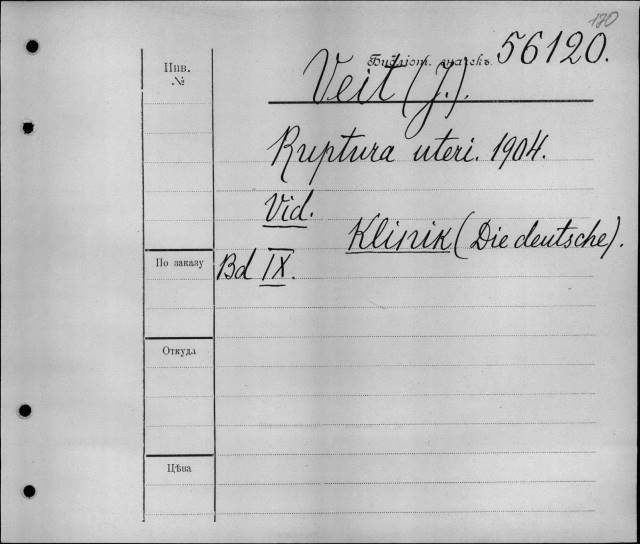 170
Библіот. значекъ 56120.
Инв. №
Veit (J.).
Ruptura uteri. 1904.
Vid.
Klinik (Die deutsche).
По заказу
Bd IX.
Откуда
Цѣна